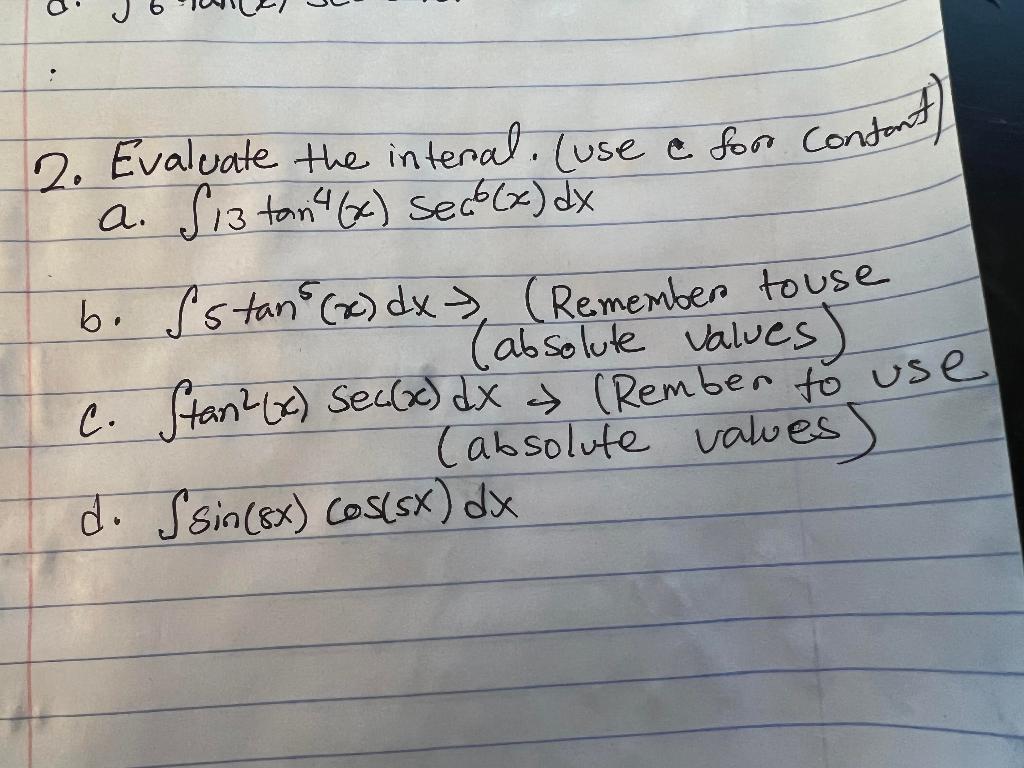 2. Evaluate the intenal. (use c for contant)
a. ∫13 tan⁴(x) sec⁶(x) dx
b. ∫5 tan⁵(x) dx → (Remember touse
(absolute values)
c. ∫tan²(x) sec(x) dx → (Rember to use
(absolute values)
d. ∫sin(8x) cos(5x) dx